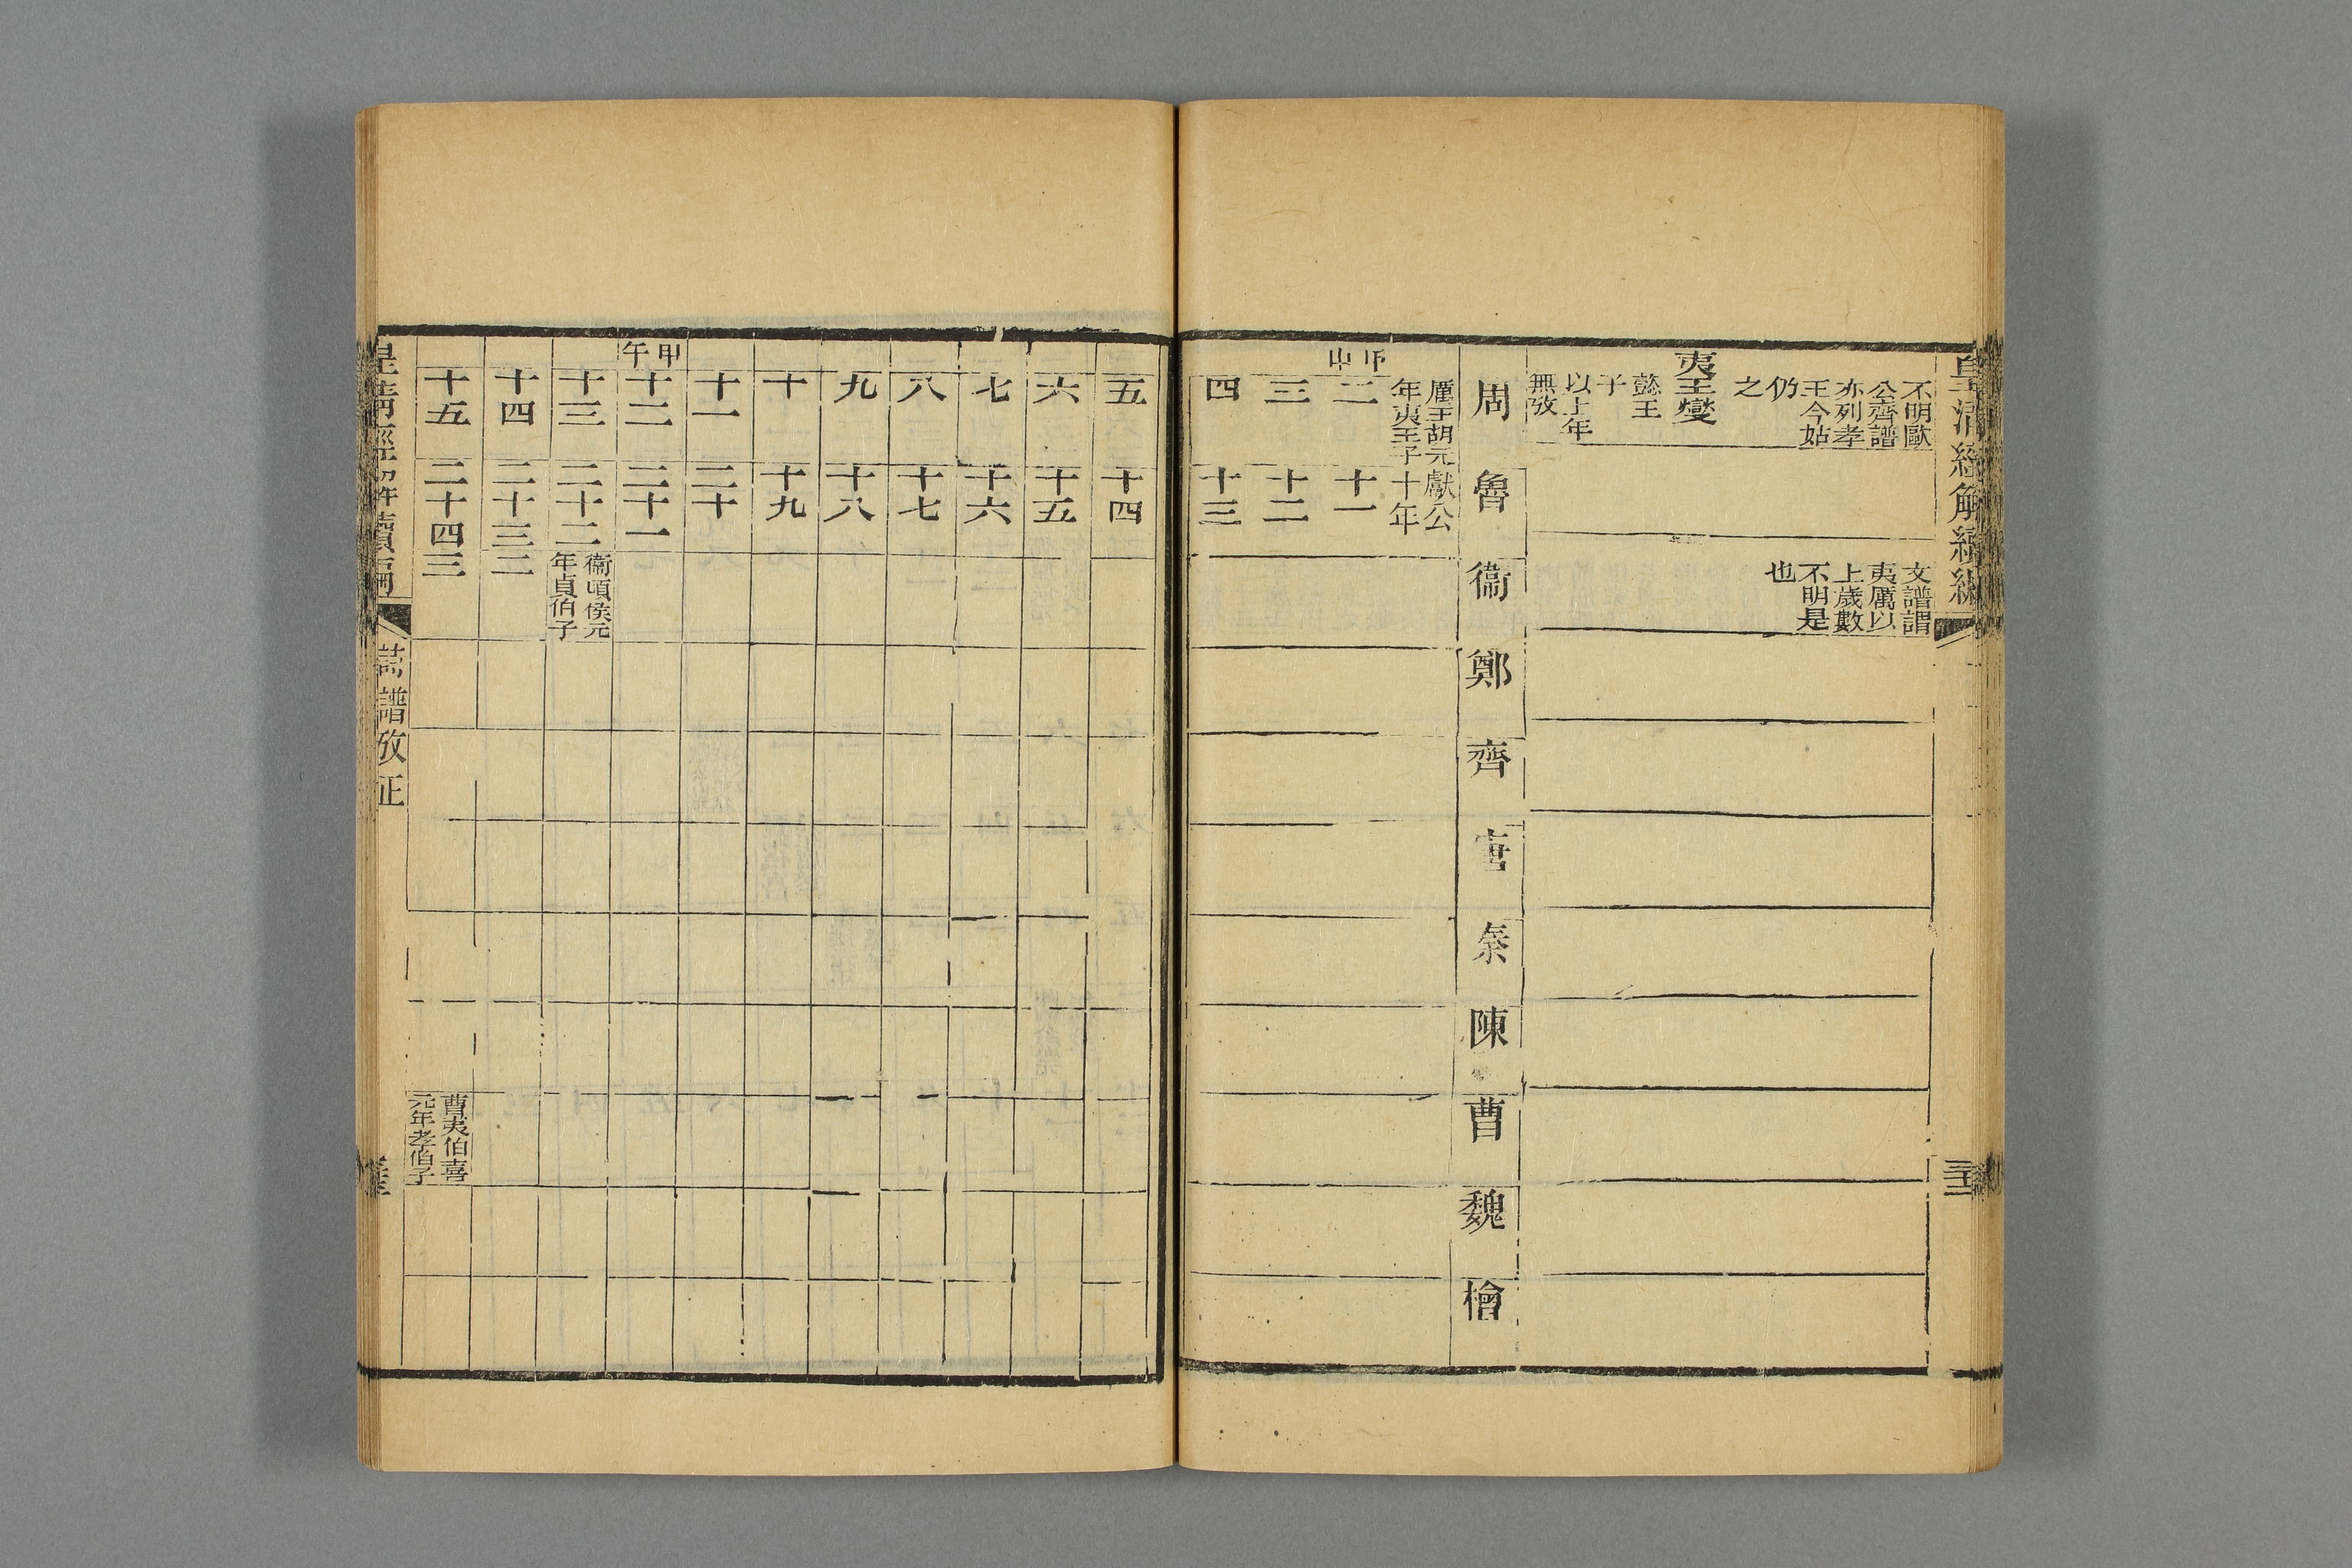 不明歐
公齊譜
亦列孝
王今姑
仍
之
夷王燮
懿王
子
以上年
無攷
文譜謂
夷厲以
上歲數
不明是
也
周 魯 衞 鄭 齊 唐 秦 陳 曹 魏 檜
厲王胡元
年夷王子
獻公
十年
二 十一
三 十二
四 十三
五 十四
六 十五
七 十六
八 十七
九 十八
十 十九
十一 二十
甲午
十二 二十一
十三 二十二
衞頃侯元
年貞伯子
十四 二十三 二
十五 二十四 三
曹夷伯喜
元年孝伯子
皇清經解續編
詩譜攷正